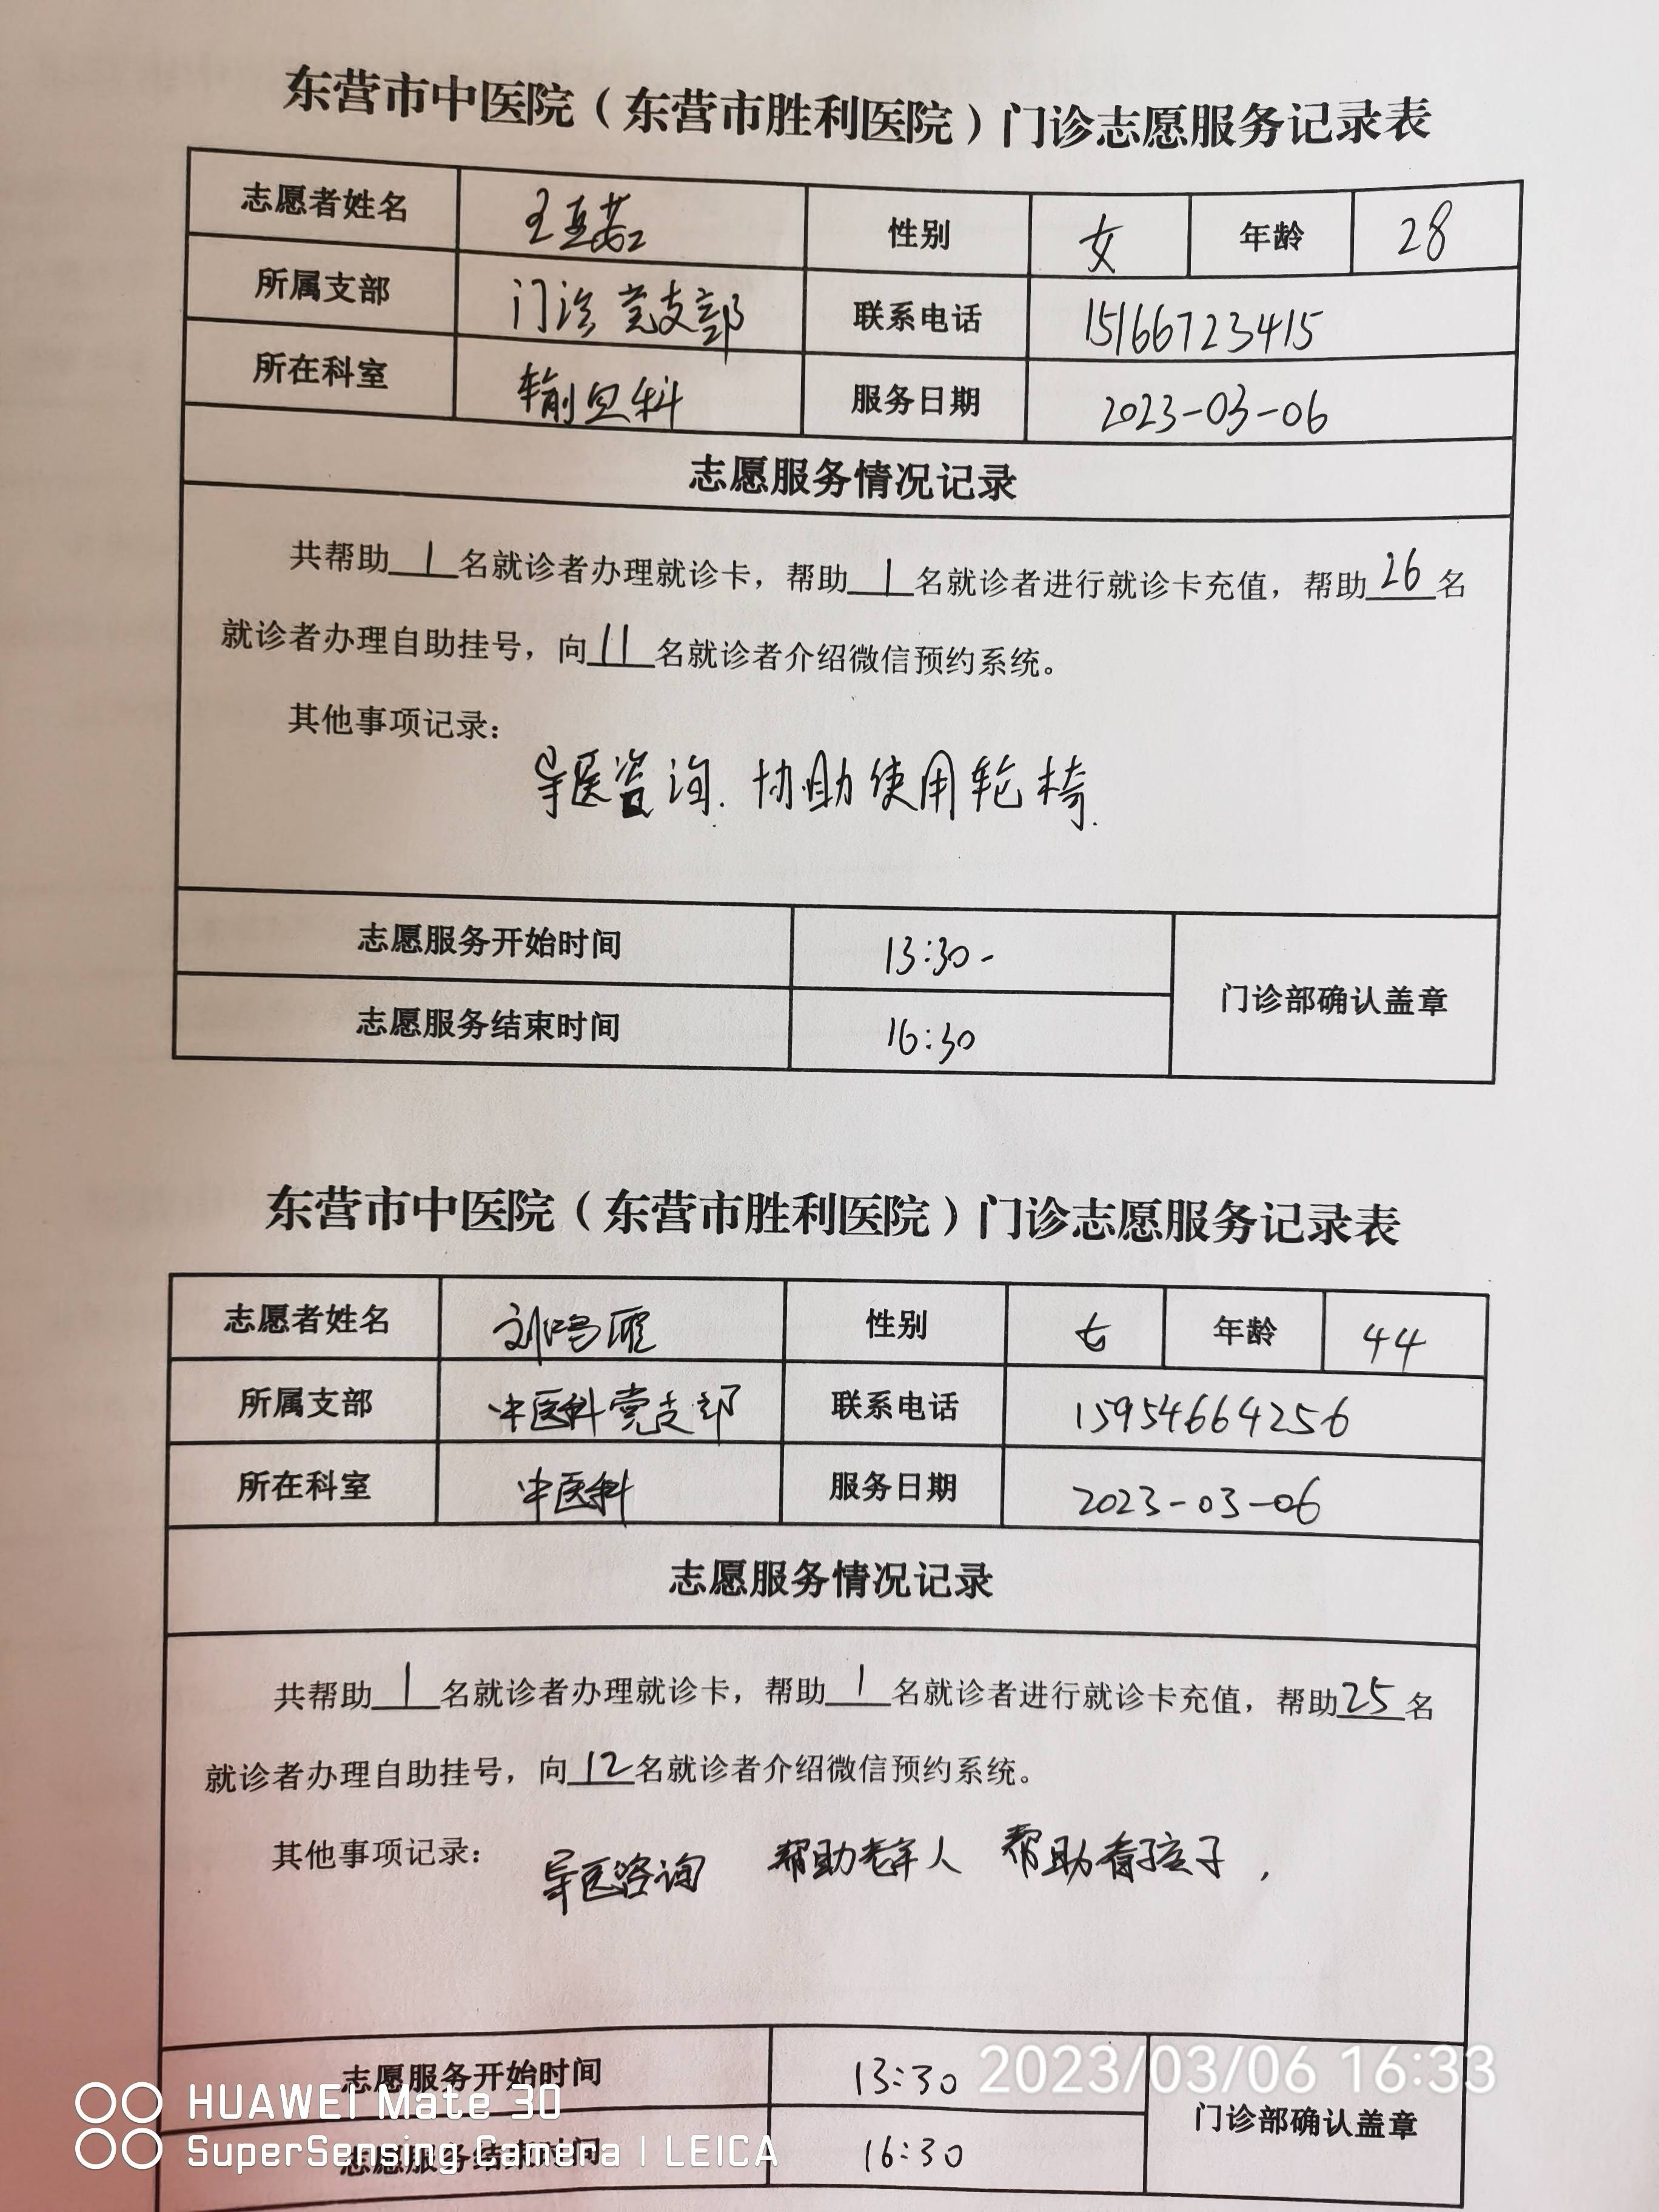 东营市中医院（东营市胜利医院）门诊志愿服务记录表
志愿者姓名 王亚茹 性别 女 年龄 28
所属支部 门诊党支部 联系电话 15166723415
所在科室 输血科 服务日期 2023-03-06
志愿服务情况记录
共帮助1名就诊者办理就诊卡，帮助1名就诊者进行就诊卡充值，帮助26名
就诊者办理自助挂号，向11名就诊者介绍微信预约系统。
其他事项记录：
导医咨询. 协助使用轮椅.
志愿服务开始时间 13:30-
门诊部确认盖章
志愿服务结束时间 16:30
东营市中医院（东营市胜利医院）门诊志愿服务记录表
志愿者姓名 刘鸣 性别 女 年龄 44
所属支部 中医科党支部 联系电话 15954664256
所在科室 中医科 服务日期 2023-03-06
志愿服务情况记录
共帮助1名就诊者办理就诊卡，帮助1名就诊者进行就诊卡充值，帮助25名
就诊者办理自助挂号，向12名就诊者介绍微信预约系统。
其他事项记录： 导医咨询 帮助老年人 帮助看孩子，
志愿服务开始时间 13:30
2023/03/06 16:33
门诊部确认盖章
志愿服务结束时间 16:30
HUAWEI Mate 30
SuperSensing Camera | LEICA